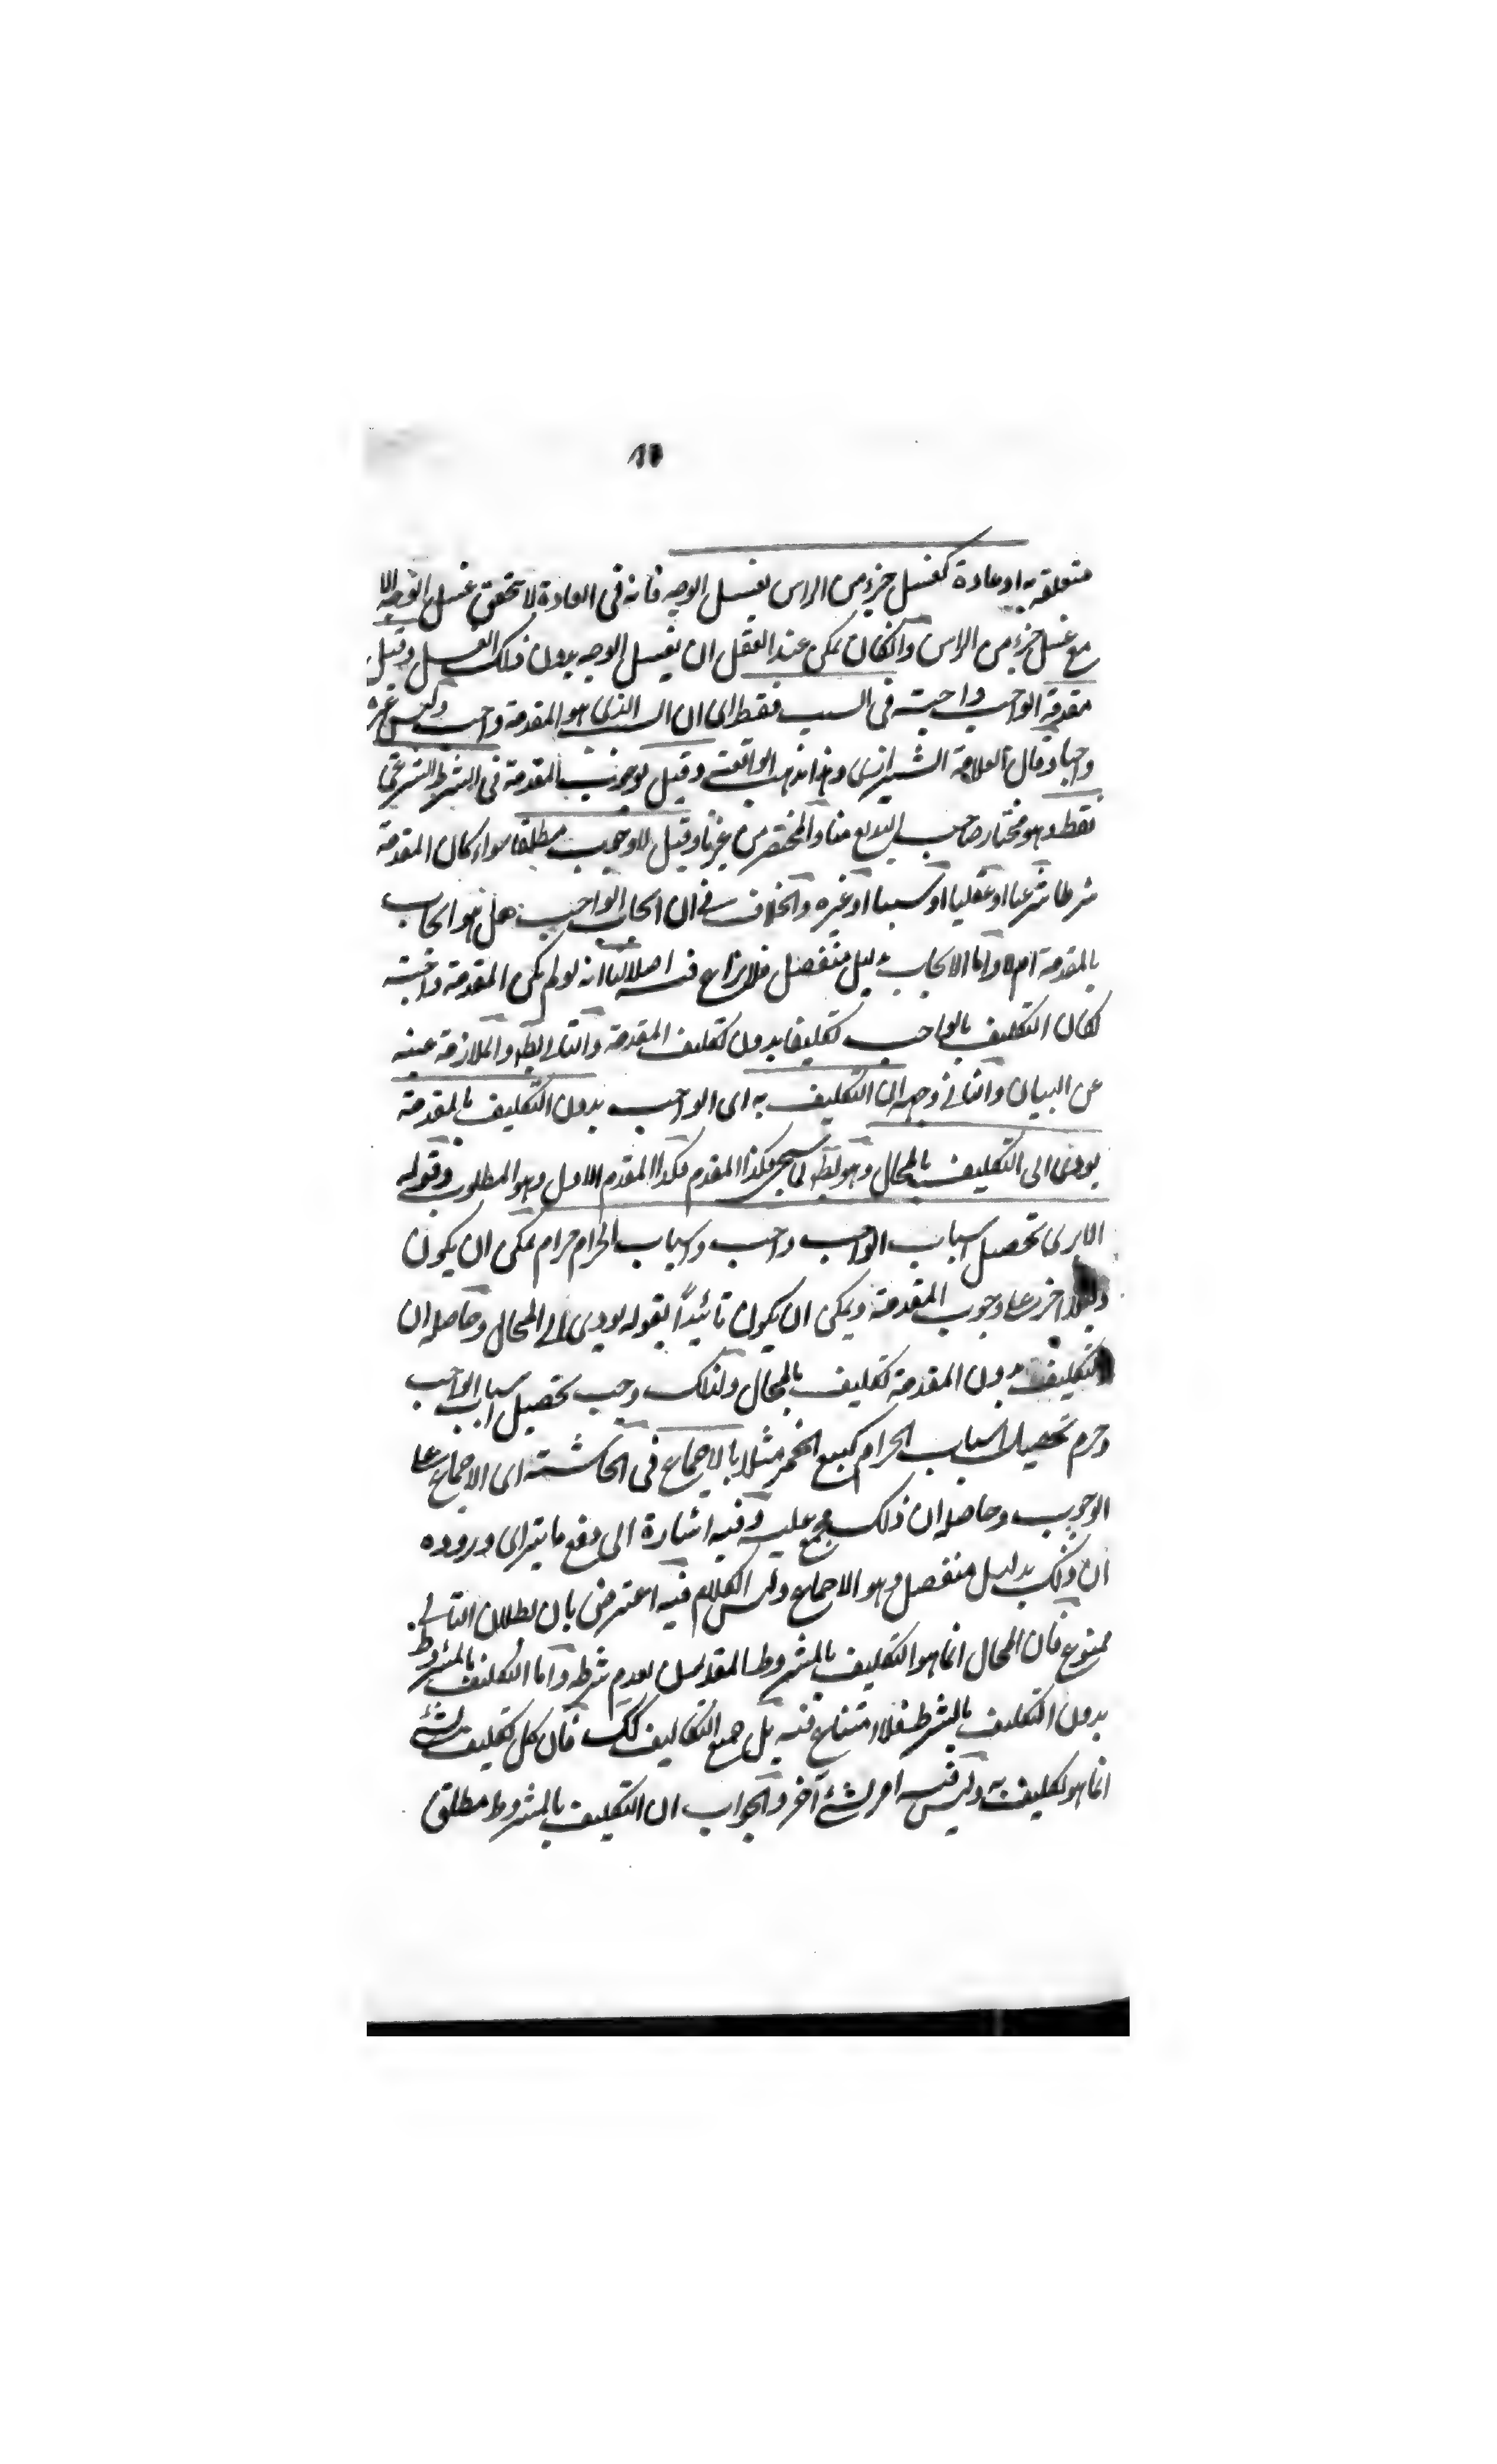 متعلقه به او عادة كغسل جزء من الراس بغسل الوجه فانه فى العادة لا يتحقق غسل الوجه الا
مع غسل جزء من الراس وانكان يمكن عند العقل ان يغسل الوجه بدون ذلك الغسل وقيل
مقدمة الواجب واجبة فى السبب فقط اى ان السبب الذى هو المقدمة واجب وليس غيره
واجبا وقال العلامة الشيرازى وهذا مذهب الواقفية وقيل بوجوب المقدمة فى الشرط الشرعى
فقط وهو مختار صاحب البديع منا والمختصر من غيرنا وقيل لا وجوب مطلقا سواء كان المقدمة
شرطا شرعيا او عقليا او سببا او غيره والخلاف فى ان ايجاب الواجب هل هو ايجاب
بالمقدمة ام لا واما الايجاب بدليل منفصل فلا نزاع فيه اصلا لنا انه لو لم يكن المقدمة واجبة
لكان التكليف بالواجب تكليفا بدون تكليف المقدمة والتالى بط والملازمة غنية
عن البيان والثانى وجهه ان التكليف به اى الواجب بدون التكليف بالمقدمة
يودى الى التكليف بالمحال وهو بط لما سيجئ فكذا المقدم فكذا المقدم الاول وهو المطلوب وقوله
الا يرى تحصيل اسباب الواجب واجب واسباب الحرام حرام يمكن ان يكون
دليلا اخر على وجوب المقدمة ويمكن ان يكون تائيدا بقوله يودى الى المحال وحاصله ان
التكليف بدون المقدمة تكليف بالمحال ولذلك وجب تحصيل اسباب الواجب
وحرم تحصيل اسباب الحرام كبيع الخمر مثلا بالاجماع فى الحاشية اى الاجماع على
الوجوب وحاصله ان ذلك مجمع عليه وفيه اشارة الى دفع ما يترا اى وروده
ان ذلك بدليل منفصل وهو الاجماع وليس الكلام فيه اعترض بان بطلان التالى
ممنوع فان المحال انما هو التكليف بالمشروط المقيد بعدم شرطه واما التكليف بالمشروط
بدون التكليف بالشرط فلا امتناع فيه بل جميع التكاليف كك فان كل تكليف بشئ
انما هو تكليف به وليس فيه امر لشئ آخر والجواب ان التكليف بالمشروط مطلق